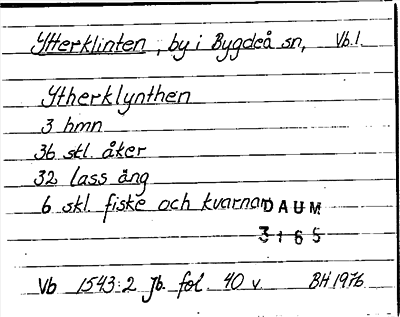 Ytterklinten, by i Bygdeå sn, Vb.l.
Ytherklynthen
3 hmn
36 skl. åker
32 lass äng
6 skl. fiske och kvarnar
DAUM
3165
Vb 1543:2 Jb. fol. 40 v. BH 1976